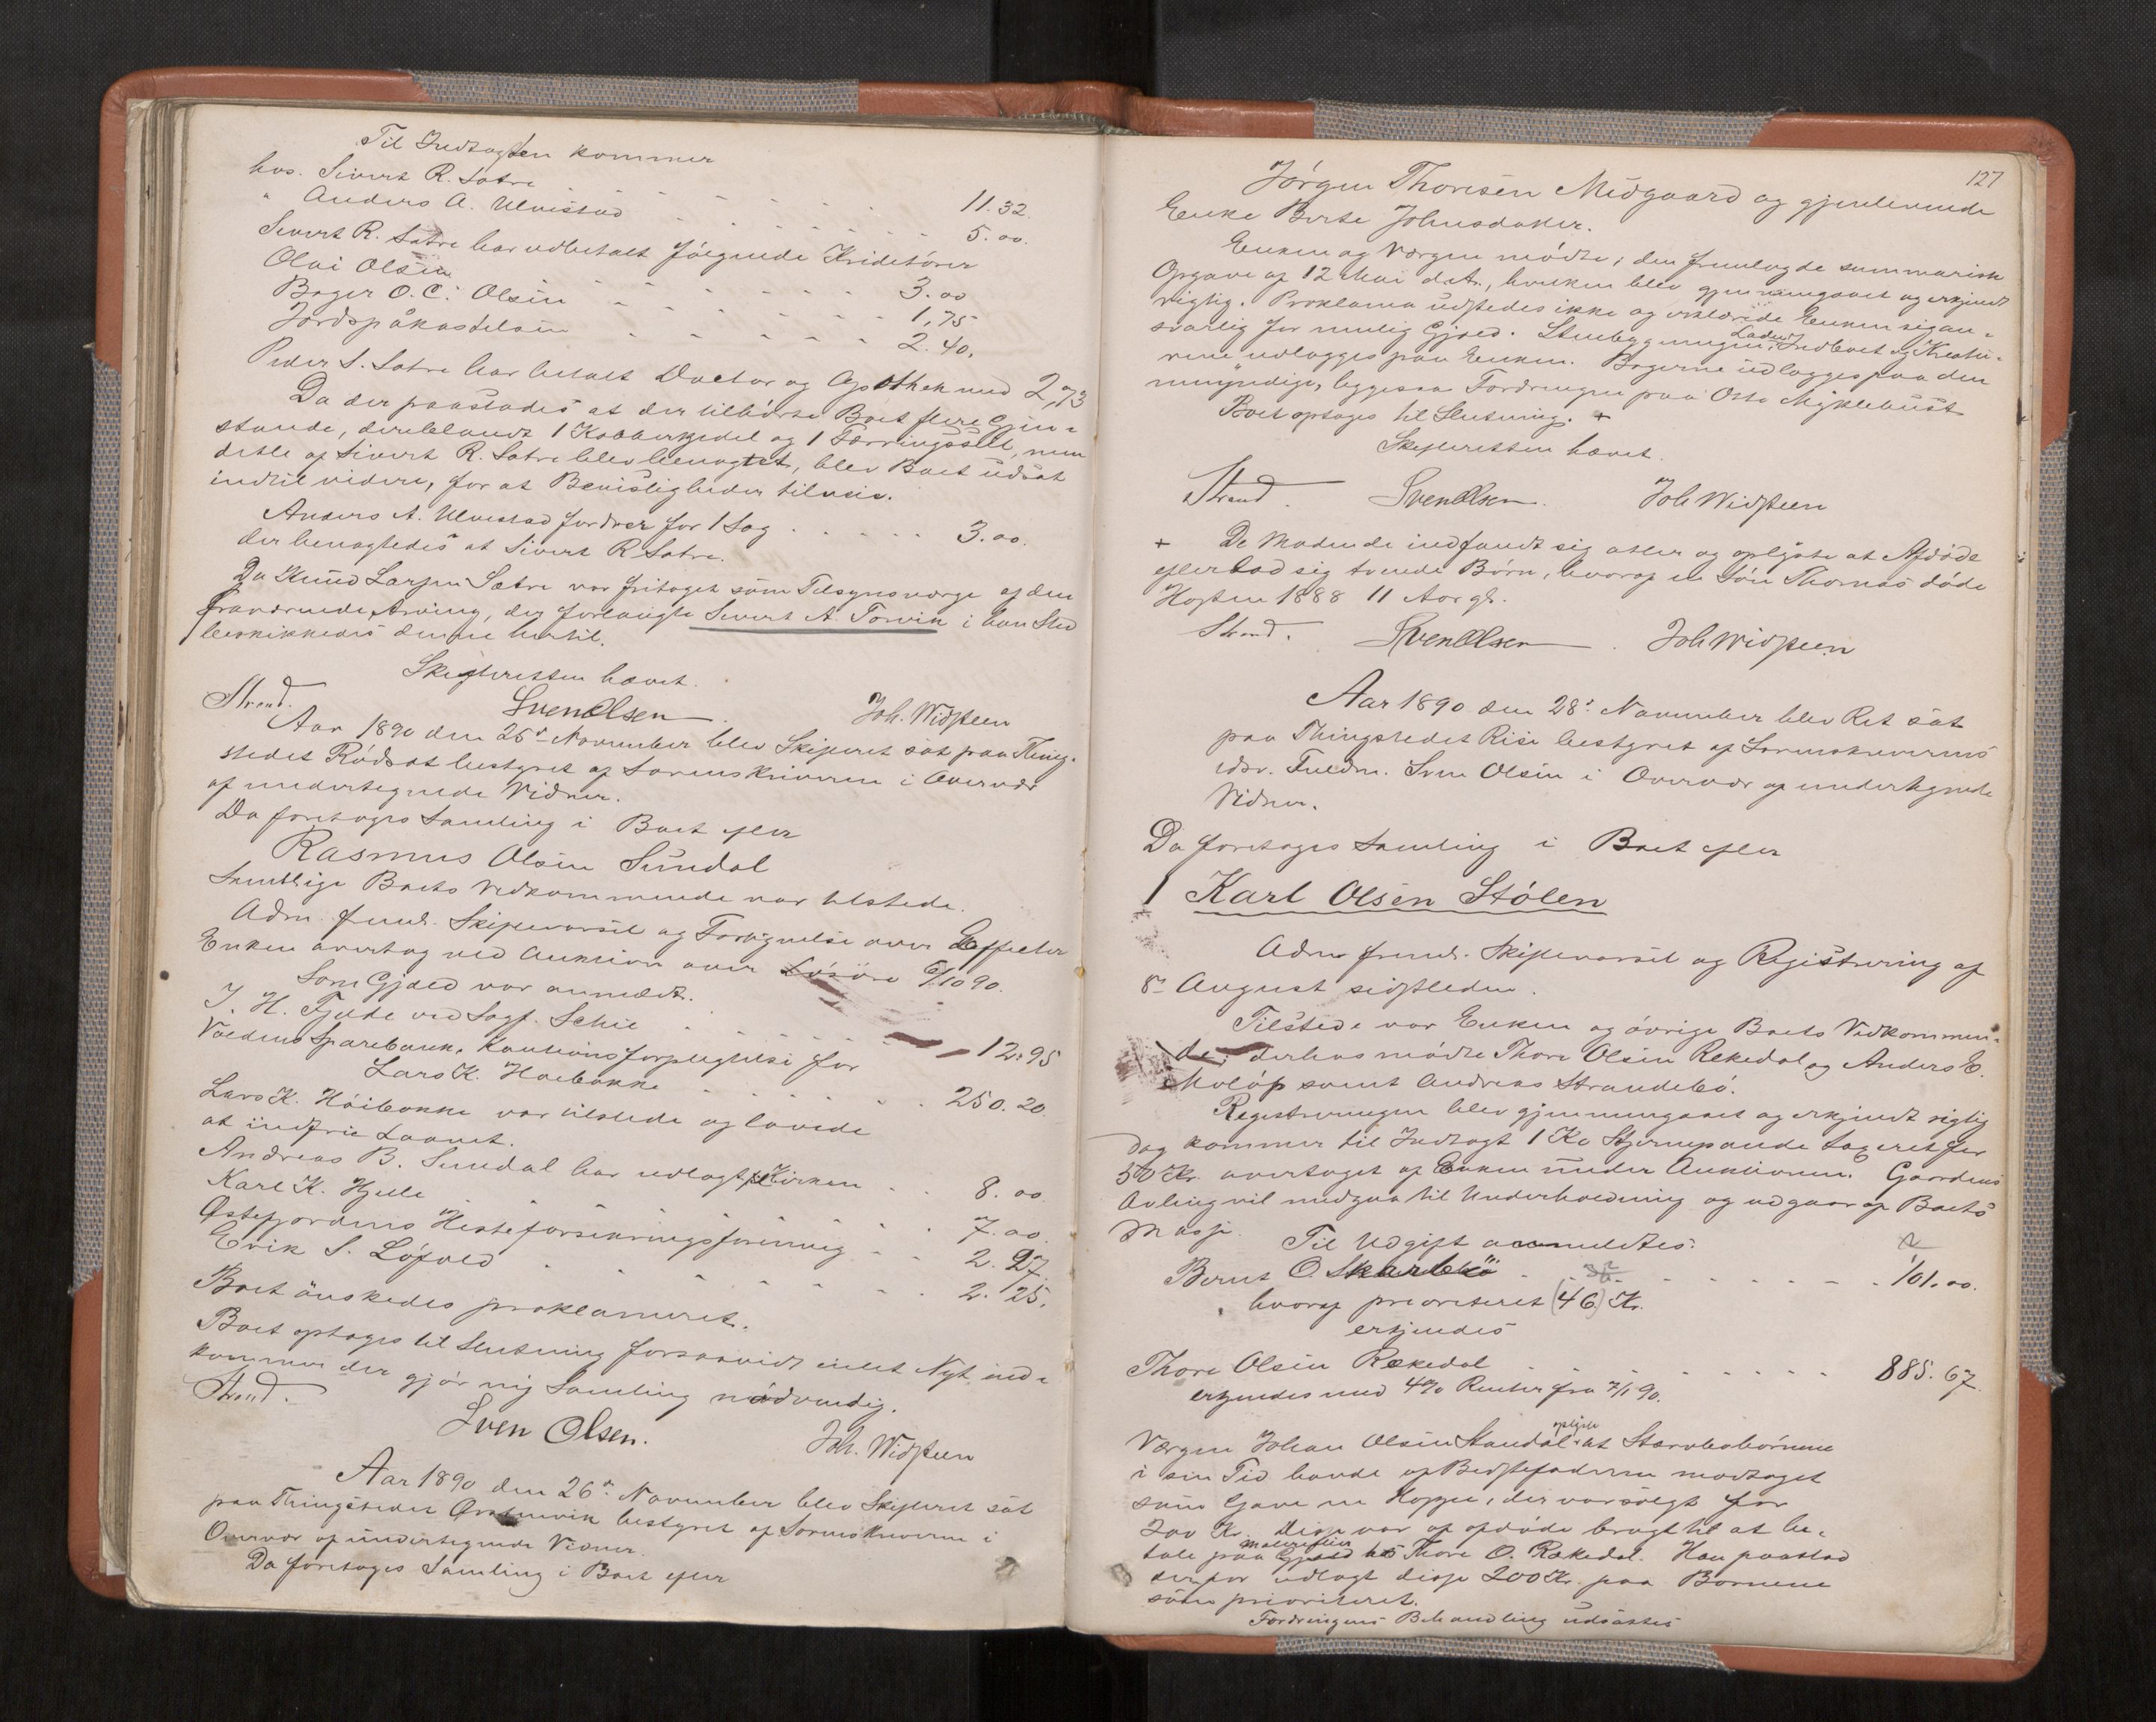 Til Indtægten kommer
hos. Sivert R. Satre . . . . . . 11.32.
" Anders A. Ulvestad . . . . . . 5.00.
Sivert R. Satre har udbetalt følgende Kriditorer
Olai Olsen . . . . . . 3.00
Bager O. C. Olsen . . . . . . 1,75
Jordspåkastelsen . . . . . . 2.40.
Peder S. Satre har betalt Doctor og Apothek med 2,73
Da der paastodes at der tilhørte Boet flere Gjen-
stande, deriblandt 1 Kobberkjedel og 1 Færringssele, men
dette af Sivert R. Satre blev benægtet, blev Boet udsat
indtil videre, for at Bevisligheder tilveie.
Anders A. Ulvestad fordrer for 1 Sag . . . . . 3.00.
der benægtedes at Sivert R Satre.
Da Knud Larsen Sætre var fritaget som Tilsynsværge af den
fraværende Arving, der forlangte Sivert A. Torvik i hans Sted
beskikkedes denne hertil.
Skifteretten hævet.
Strand. Sven Olsen. Joh. Widsteen
Aar 1890 den 25de November blev Skifteret sat paa Thing-
stedet Rødsæt bestyret af Sorenskriveren i Overvær
af undertegnede Vidner.
Da foretoges Samling i Boet efter
Rasmus Olsen Sundal
Samtlige Boets Vedkommende var tilstede.
Adm. freml. Skiftevarsel og Fortegnelse over Effecter
Enken overtog ved Auktion over Løsøre 6/10 90.
Som Gjæld var anmeldt.
J. H. Fjelde ved Sagf. Schie . . . . . 12.95
Voldens Sparebank, Kautionsforpligtelse for
Lars K. Høibakke . . . . . . 250.20.
Lars K. Høibakke var tilstede og lovede
at indfrie Laanet.
Andreas B. Sundal har udlagt til Kirken . . 8.00.
Karl K. Hjelle . . . . . . 7.00.
Østefjordens Hesteforsikringsforening . . 2.27.
Erik S. Løfold . . . . . . 2.25.
Boet ønskedes proklameret.
Boet optoges til Slutning forsaavidt intet Nyt ind-
kommer der gjør ny Samling nødvendig.
Strand. Sven Olsen. Joh. Widsteen
Aar 1890 den 26de November blev Skifteret sat
paa Thingstedet Ørstenvik bestyret af Sorenskriveren i
Overvær af undertegnede Vidner.
Da foretoges Samling i Boet efter
127
Jørgen Thoresen Midgaard og gjenlevende
Enke Berte Johnsdatter.
Enken og Værgen mødte; den fremlagde summarisk
Opgave af 12 Mai d.A., hvilken blev gjennemgaaet og erkjendt
rigtig. Proklama udstedes ikke og erklærede Enken sig an-
svarlig for mulig Gjæld. Stuebygningen, Laden, Indboet og Kreatu-
rene udlægges paa Enken. Bøgerne udlægges paa den
umyndige, ligesaa Fordringen paa Otto Myklebust
Boet optoges til Slutning. +
Skifteretten hævet.
Strand. Sven Olsen. Joh Widsteen
+ De Mødende indfandt sig atter og oplyste at Afdøde
efterlod sig tvende Børn, hvoraf en Søn Thomas døde
Høsten 1888 11 Aar gl.
Strand. Sven Olsen. Joh Widsteen
Aar 1890 den 28de November blev Ret sat
paa Thingstedet Rise bestyret af Sorenskriverens
edsv. Fuldm. Sven Olsen i Overvær af undertegnede
Vidner.
Da foretoges Samling i Boet efter
1 Karl Olsen Stølen
Adm freml. Skiftevarsel og Registrering af
8de August sidstleden.
Tilstede var Enken og øvrige Boets Vedkommen-
de; derhos mødte Thore Olsen Rekedal og Anders E.
Moløp samt Andreas Strandebø.
Registreringen blev gjennemgaaet og erkjendt rigtig
dog kommer til Indtægt 1 Ko Stjernepande taxeret for
50 Kr. overtaget af Enken under Auktionen. Gaardens
Avling vil medgaa til Underholdning og udgaar af Boets
Masse.
Til Udgift anmeldtes:
Bernt O. Skarbø . . . . . . 101.00.
hvoraf prioriteret (46) Kr.
erkjendes
Thore Olsen Rekedal . . . . . . 885.67.
erkjendes med 4% Renter fra 7/1 90.
Værgen Johan Olsen Standal oplyste at Stervbobørnene
i sin Tid havde af Bedstefaderen modtaget
som Gave en Hoppe, der var solgt for
200 Kr. Disse var af afdøde brugt til at be-
tale paa Gjæld hos Thore O. Rekedal. Han paastod
derfor udlagt disse 200 Kr. paa Børnene
som prioriteret.
Fordringens Behandling udsattes